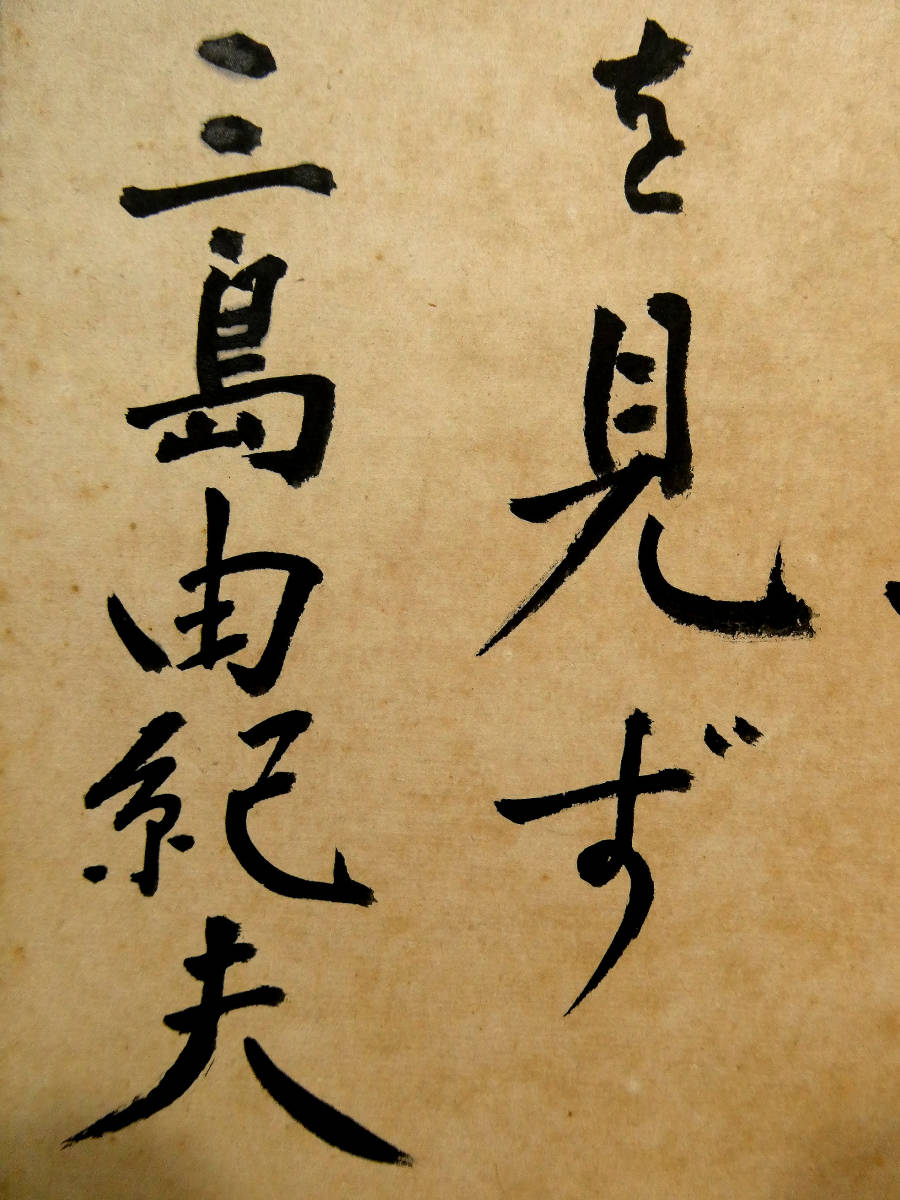 を見ず
三島由紀夫